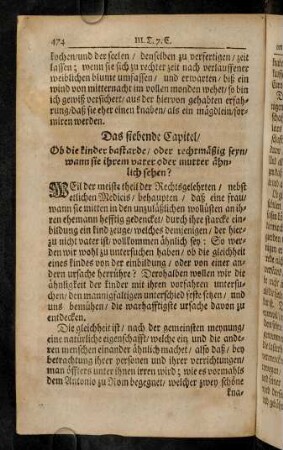 474 III. T. 7. C.
kochen/und der seelen / denselben zu verfertigen/ zeit
lassen; wenn sie sich zu rechter zeit nach verlauffener
weiblichen blume umfassen/ und erwarten/ biß ein
wind von mitternacht im vollen monden wehet/ so bin
ich gewiß versichert/ aus der hiervon gehabten erfah-
rung/ daß sie eher einen knaben/ als ein mägdlein/for-
miren werden.
Das siebende Capitel/
Ob die kinder bastarde/ oder rechtmäßig seyn/
wann sie ihrem vater oder mutter ähn-
lich sehen?
WEil der meiste theil der Rechtsgelehrten / nebst
etlichen Medicis / behaupten / daß eine frau/
wann sie mitten in den unzuläßlichen wollüsten an ih-
ren ehemann hefftig gedencke/ durch ihre starcke ein-
bildung ein kind zeuge/ welches demjenigen / der hier-
zu nicht vater ist/ vollkommen ähnlich sey: So wer-
den wir wohl zu untersuchen haben/ ob die gleichheit
eines kindes von der einbildung / oder von einer an-
dern ursache herrühre? Derohalben wollen wir die
ähnligkeit der kinder mit ihren vorfahren untersu-
chen/ den mannigfaltigen unterschied feste setzen/ und
uns bemühen/ die warhafftigste ursache davon zu
entdecken.
Die gleichheit ist/ nach der gemeinsten meynung/
eine natürliche eigenschafft/ welche ein und die ande-
ren menschen einander ähnlich machet/ also daß/ bey
betrachtung ihrer personen und ihrer verrichtungen/
man öffters unter ihnen irren wird; wie es vormahls
dem Antonio zu Rom begegnet/ welcher zwey schöne
kna-